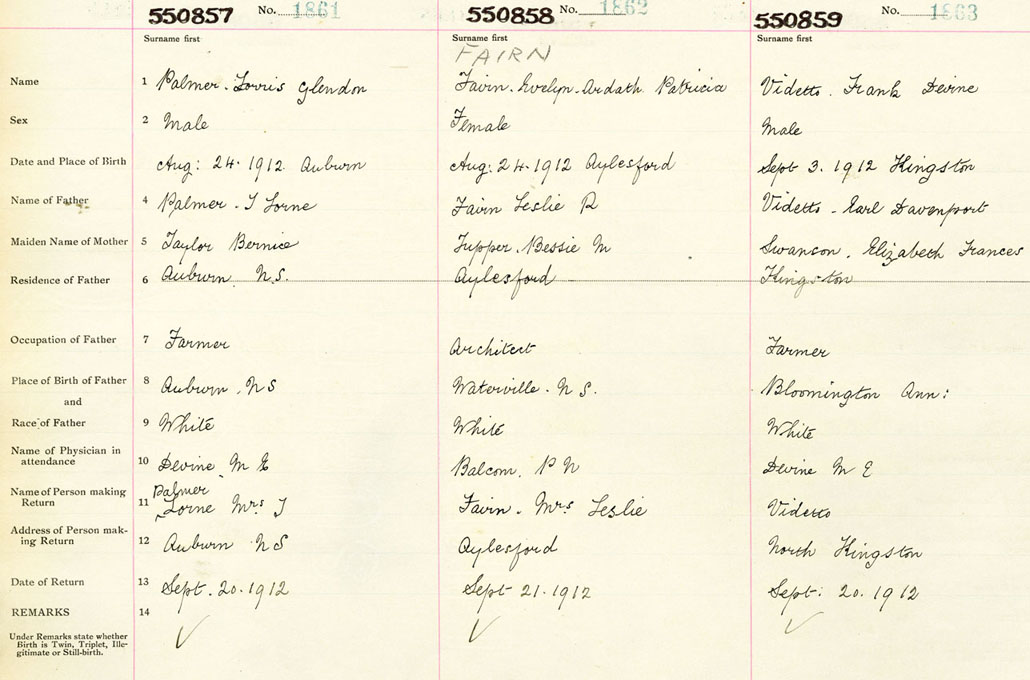 550857 No. 1861 550858 No. 1862 550859 No. 1863
Surname first Surname first Surname first
FAIRN
Name 1 Palmer. Lorris Glendon Fairn. Evelyn. Ardath Patricia Videtto. Frank Devine
Sex 2 Male Female Male
Date and Place of Birth Aug: 24. 1912 Auburn Aug: 24. 1912 Aylesford Sept 3. 1912 Kingston
Name of Father 4 Palmer - I Lorne Fairn Leslie R Videtto - Earl Davenport
Maiden Name of Mother 5 Taylor Bernice Tupper. Bessie M Swanson. Elizabeth Frances
Residence of Father 6 Auburn N.S. Aylesford Kingston
Occupation of Father 7 Farmer Architect Farmer
Place of Birth of Father 8 Auburn. N S Waterville. N S. Bloomington Ann:
and
Race of Father 9 White White White
Name of Physician in
attendance 10 Devine M E Balcom. P N Devine M E
Name of Person making Palmer
Return 11 Lorne Mrs I Fairn. Mrs Leslie Videtto
Address of Person mak-
ing Return 12 Auburn N S Aylesford North Kingston
Date of Return 13 Sept. 20. 1912 Sept 21. 1912 Sept: 20. 1912
REMARKS 14
Under Remarks state whether
Birth is Twin, Triplet, Ille-
gitimate or Still-birth.